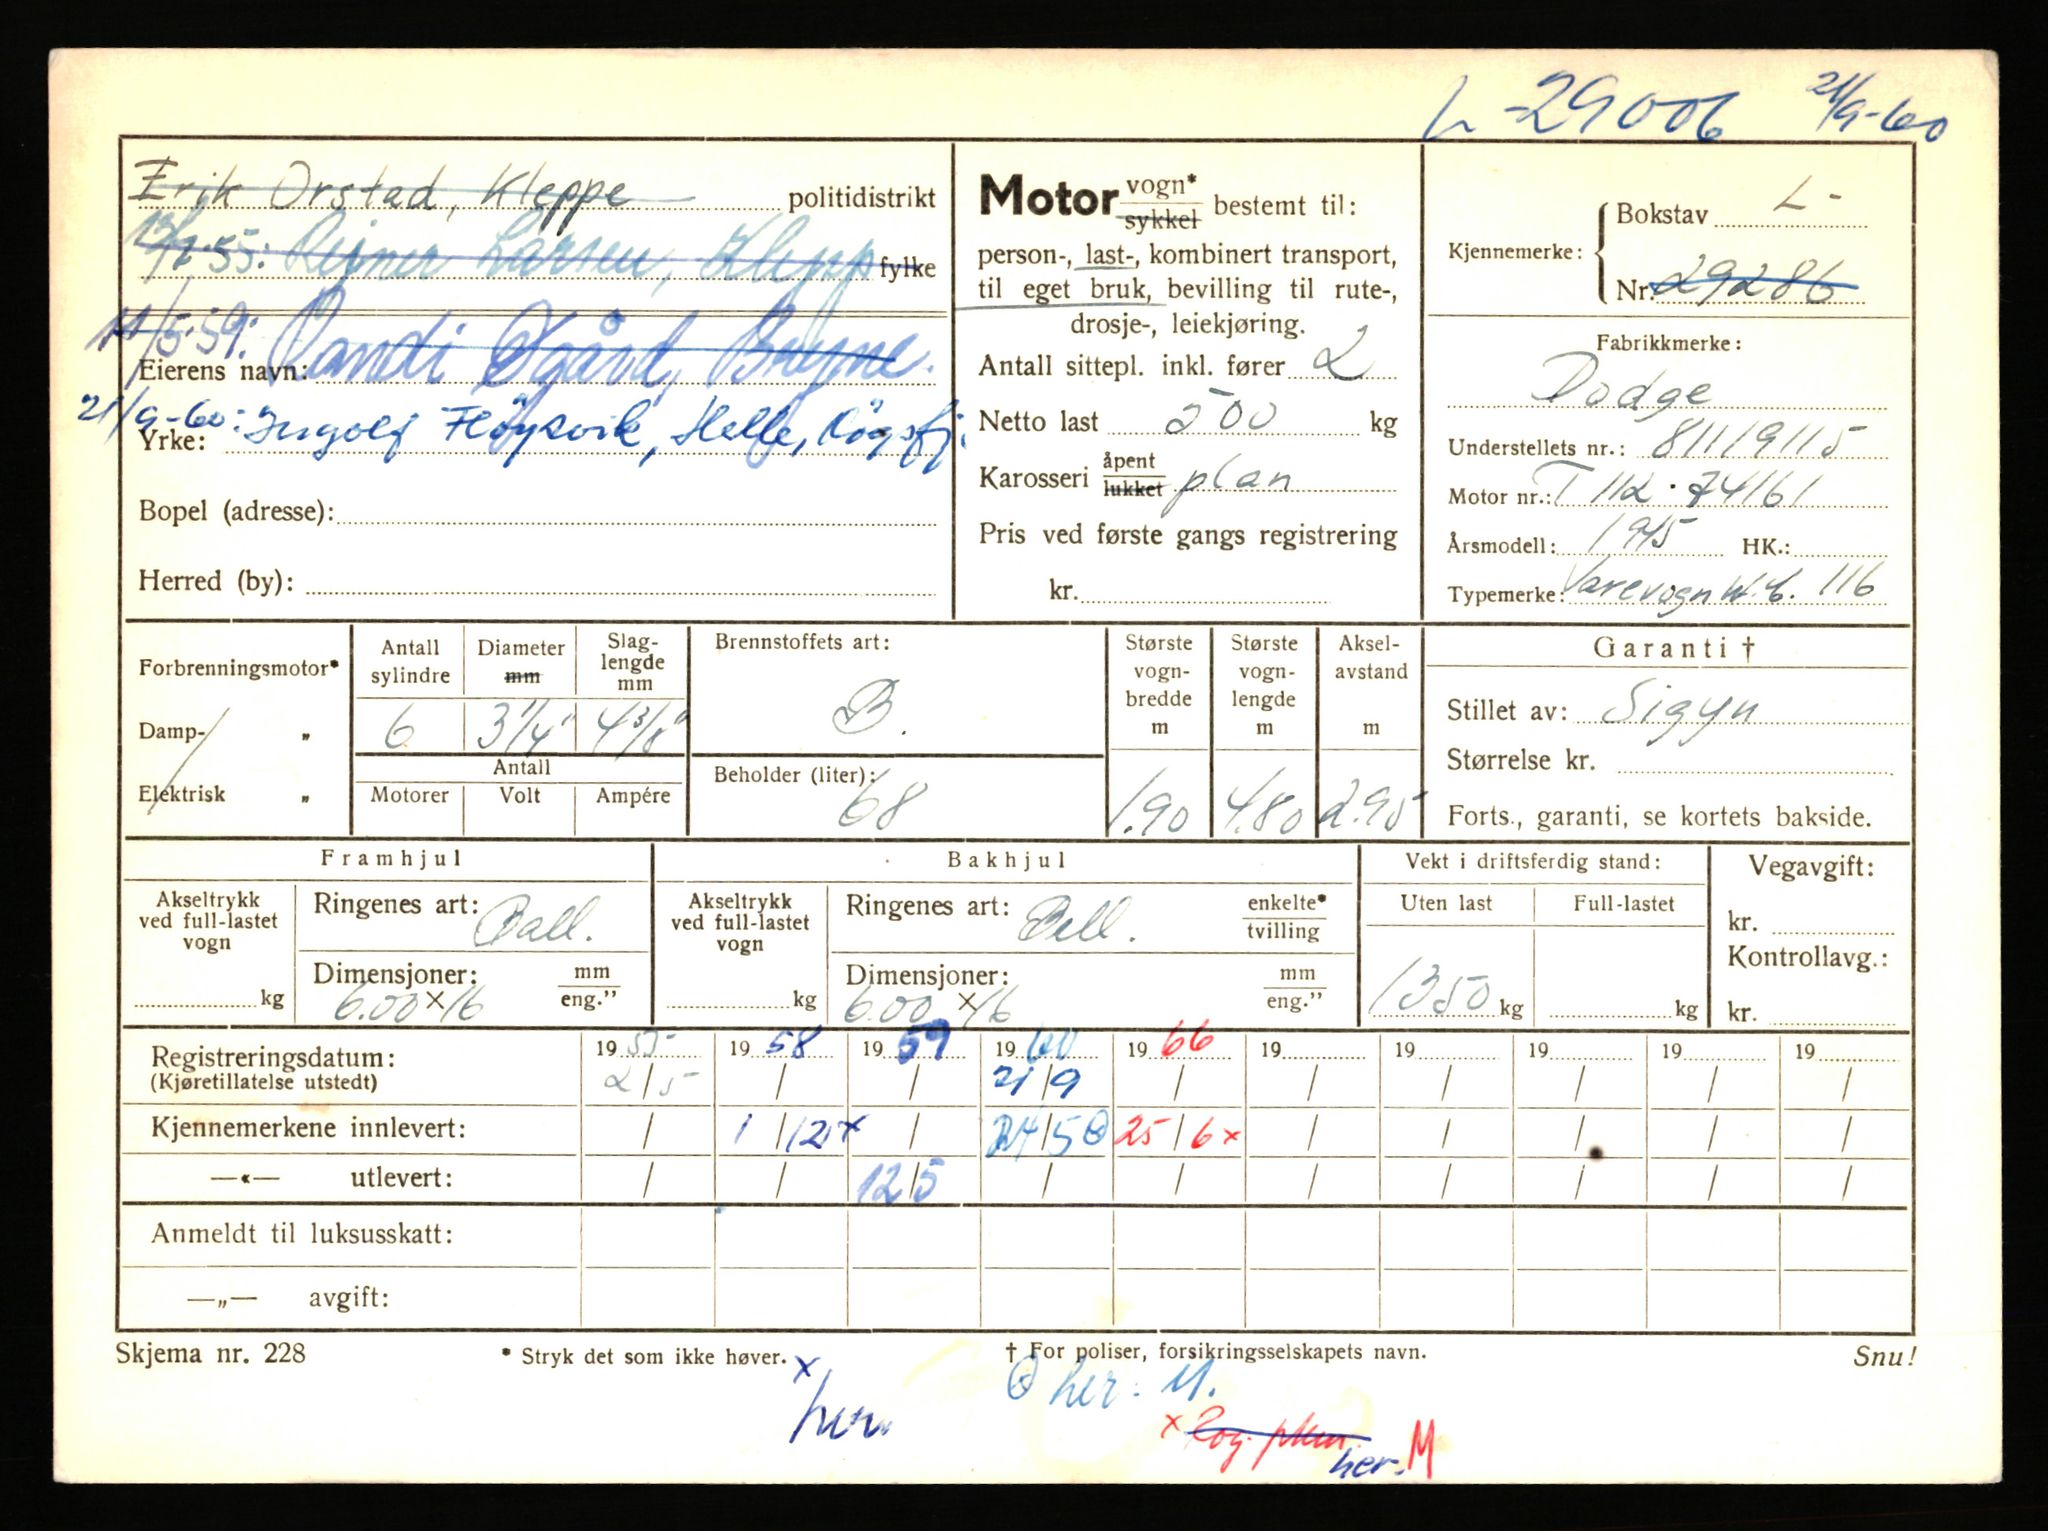 L-29006 21/9-60
Erik Orstad, Kleppe politidistrikt
13/7-55: Reiner Larsen, Klepp fylke
11/5-59: Randi Øgård, Bryne.
Eierens navn:
21/9-60: Ingolf Fløysvik, Helle, Høgsfj.
Yrke:
Bopel (adresse):
Herred (by):
Motor vogn* / sykkel bestemt til:
person-, last-, kombinert transport,
til eget bruk, bevilling til rute-,
drosje-, leiekjøring.
Antall sittepl. inkl. fører 2
Netto last 500 kg
Karosseri åpent / lukket plan
Pris ved første gangs registrering
kr.
Kjennemerke: Bokstav L-
Nr. 29286
Fabrikkmerke:
Dodge
Understellets nr.: 81119115
Motor nr.: T 112·74161
Årsmodell: 1945 HK.:
Typemerke: Varevogn W.C. 116
Forbrenningsmotor*
Damp- „
Elektrisk „
Antall sylindre 6
Diameter mm 3 1/4"
Slaglengde mm 4 3/8"
Antall
Motorer Volt Ampére
Brennstoffets art:
B.
Beholder (liter): 68
Største vognbredde m 1.90
Største vognlengde m 4.80
Akselavstand m 2.95
Garanti †
Stillet av: Sigyn
Størrelse kr.
Forts., garanti, se kortets bakside.
Framhjul
Akseltrykk ved full-lastet vogn kg
Ringenes art: Ball.
Dimensjoner: mm / eng."
6.00 x 16
Bakhjul
Akseltrykk ved full-lastet vogn kg
Ringenes art: Ball. enkelte* / tvilling
Dimensjoner: mm / eng."
6.00 x 16
Vekt i driftsferdig stand:
Uten last Full-lastet
1350 kg kg
Vegavgift:
kr.
Kontrollavg.:
kr.
Registreringsdatum: 1955 1958 1959 1960 1966 19 19 19 19 19
(Kjøretillatelse utstedt) 2/5 / / 21/9 / / / / / /
Kjennemerkene innlevert: / 1/12x / 24/5 ⊗ 25/6x / / / / /
—«— utlevert: / / 12/5 / / / / / / /
Anmeldt til luksusskatt:
—„— avgift:
Skjema nr. 228 * Stryk det som ikke høver. † For poliser, forsikringsselskapets navn. Snu!
x her.
⊗ her. M.
x Rog. plan her. M